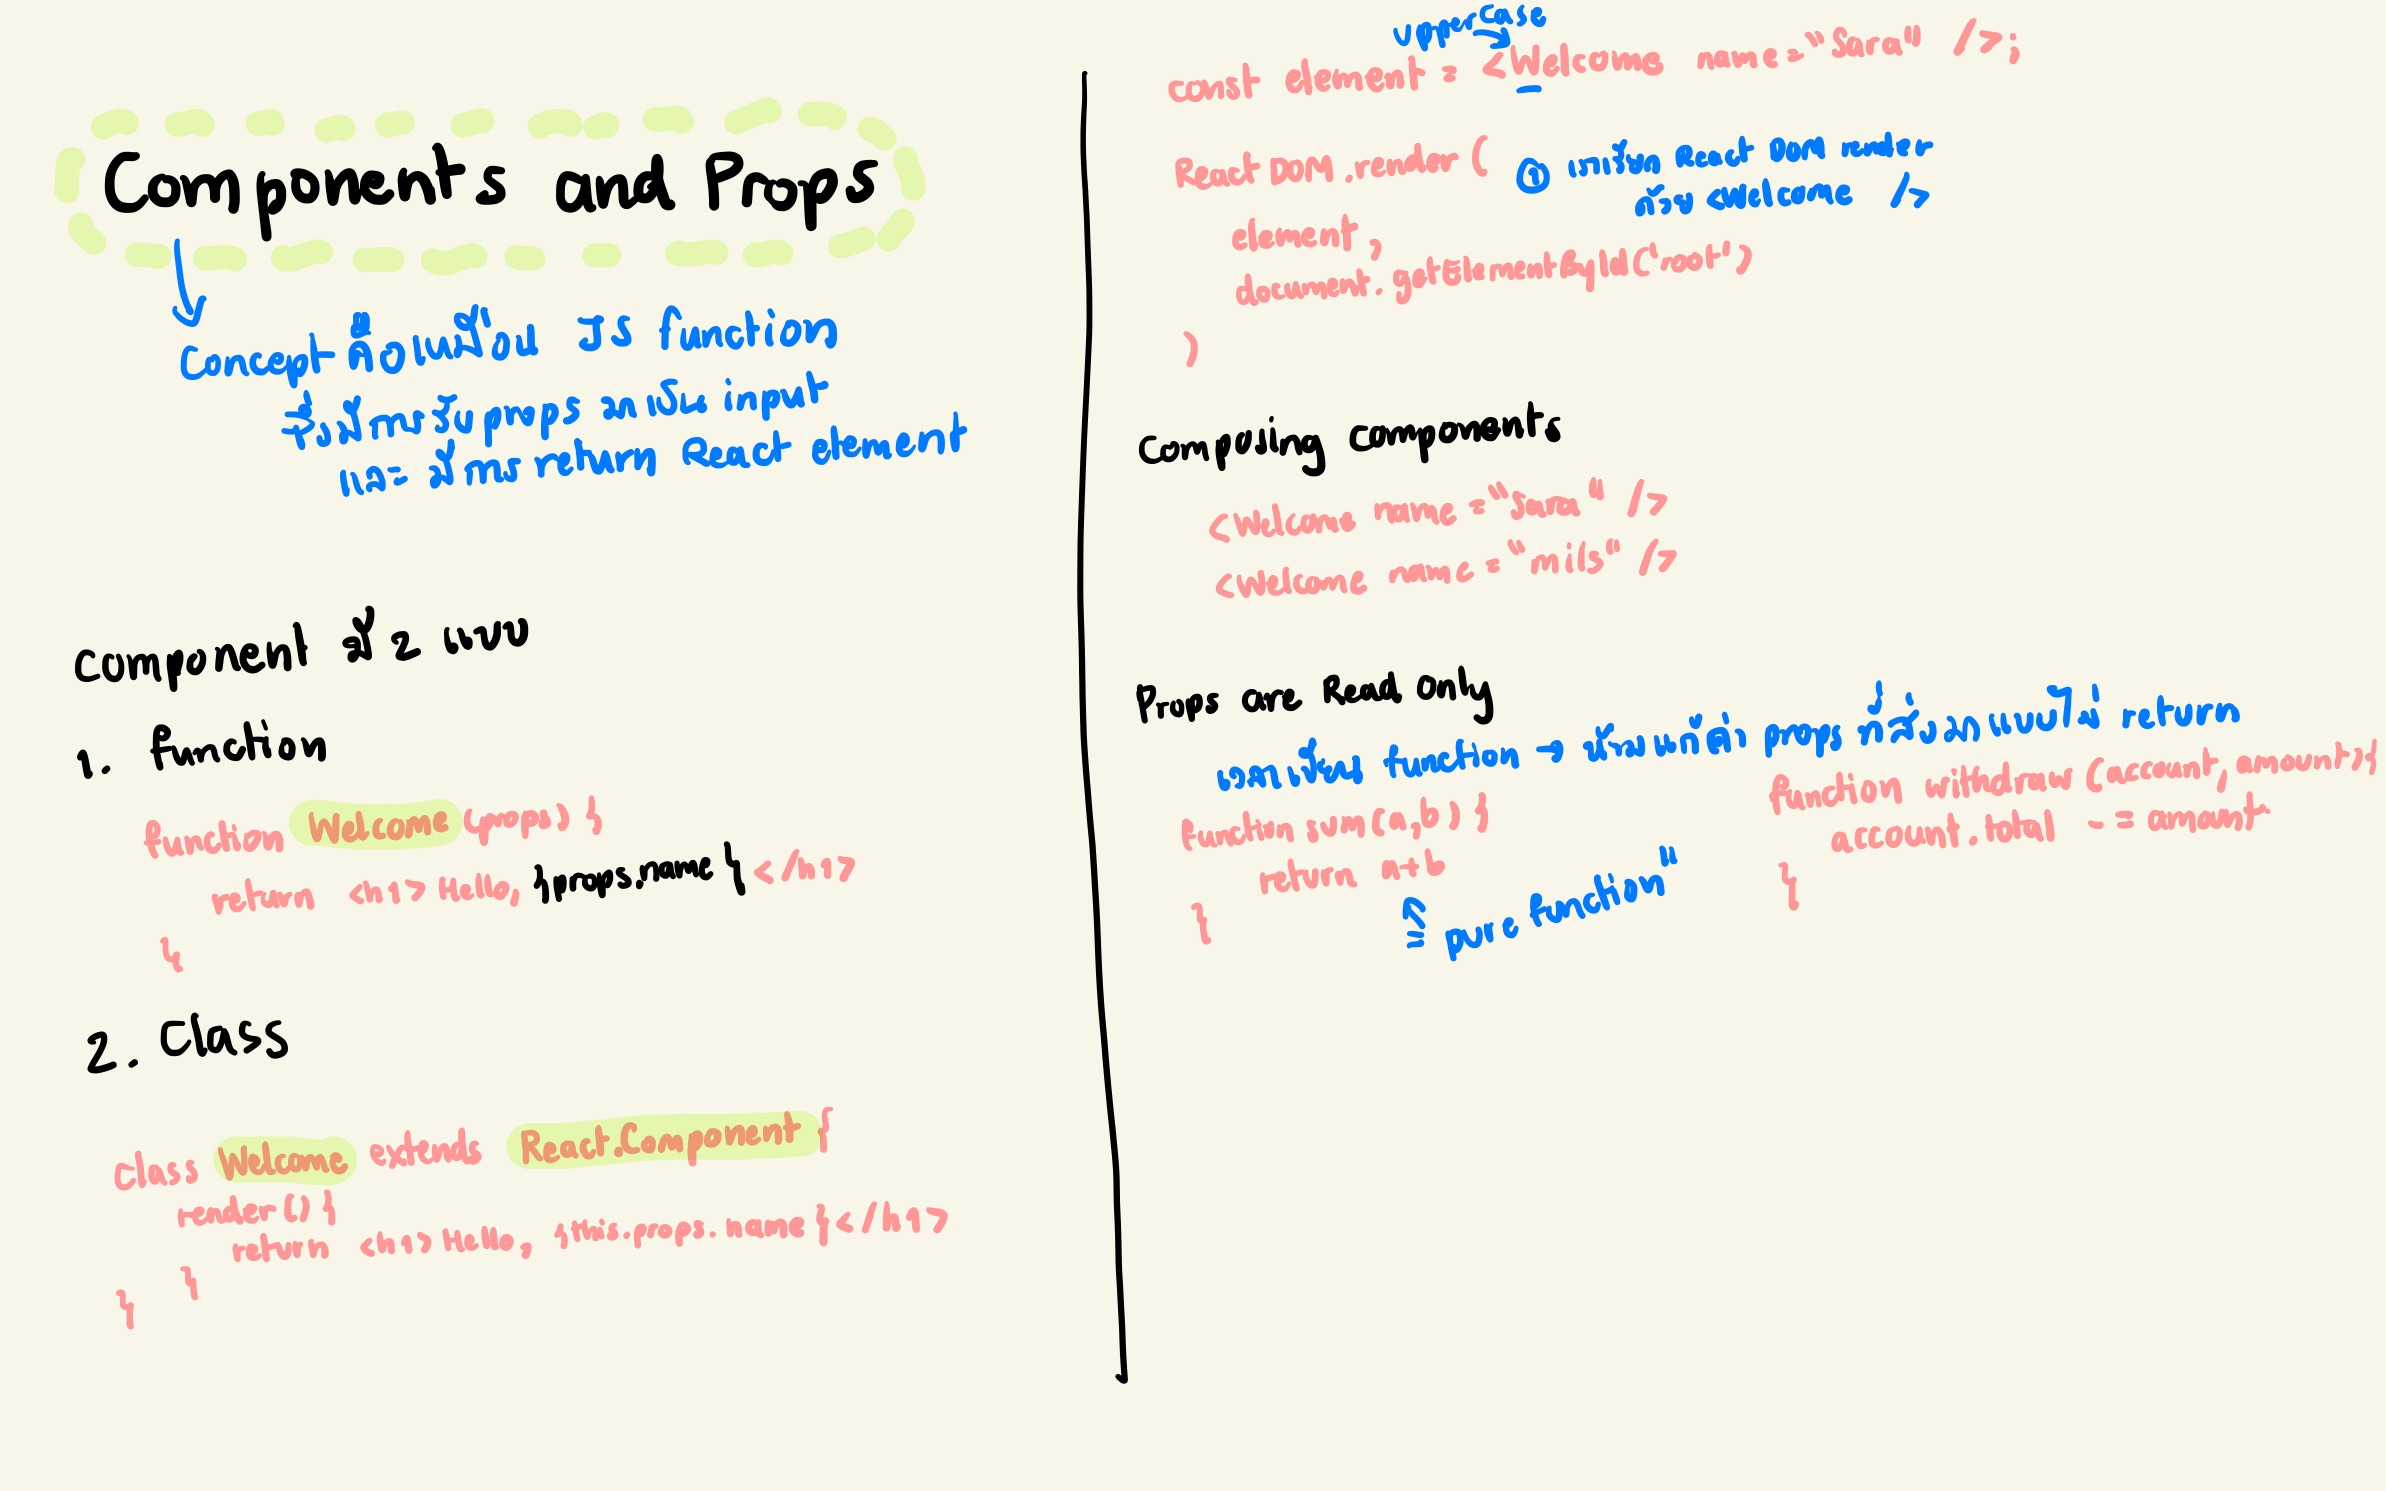 Components and Props
Concept คือเหมือน JS function
ซึ่งมีการรับ props มาเป็น input
และ มีการ return React element
Component มี 2 แบบ
1. function
function Welcome (props) {
return <h1> Hello, {props.name} </h1>
}
2. Class
class Welcome extends React.Component {
render() {
return <h1> Hello, {this.props.name} </h1>
}
}
uppercase
const element = <Welcome name="Sara" />;
ReactDOM.render (
① เราเรียก React DOM render
ด้วย <Welcome />
element,
document.getElementById('root')
)
Composing components
<Welcome name="Sara" />
<Welcome name="mils" />
Props are Read Only
เวลาเขียน function → ห้ามแก้ค่า props ที่ส่งมาแบบไม่ return
function sum(a,b) {
return a+b
}
pure function"
function withdraw (account, amount) {
account.total -= amount
}